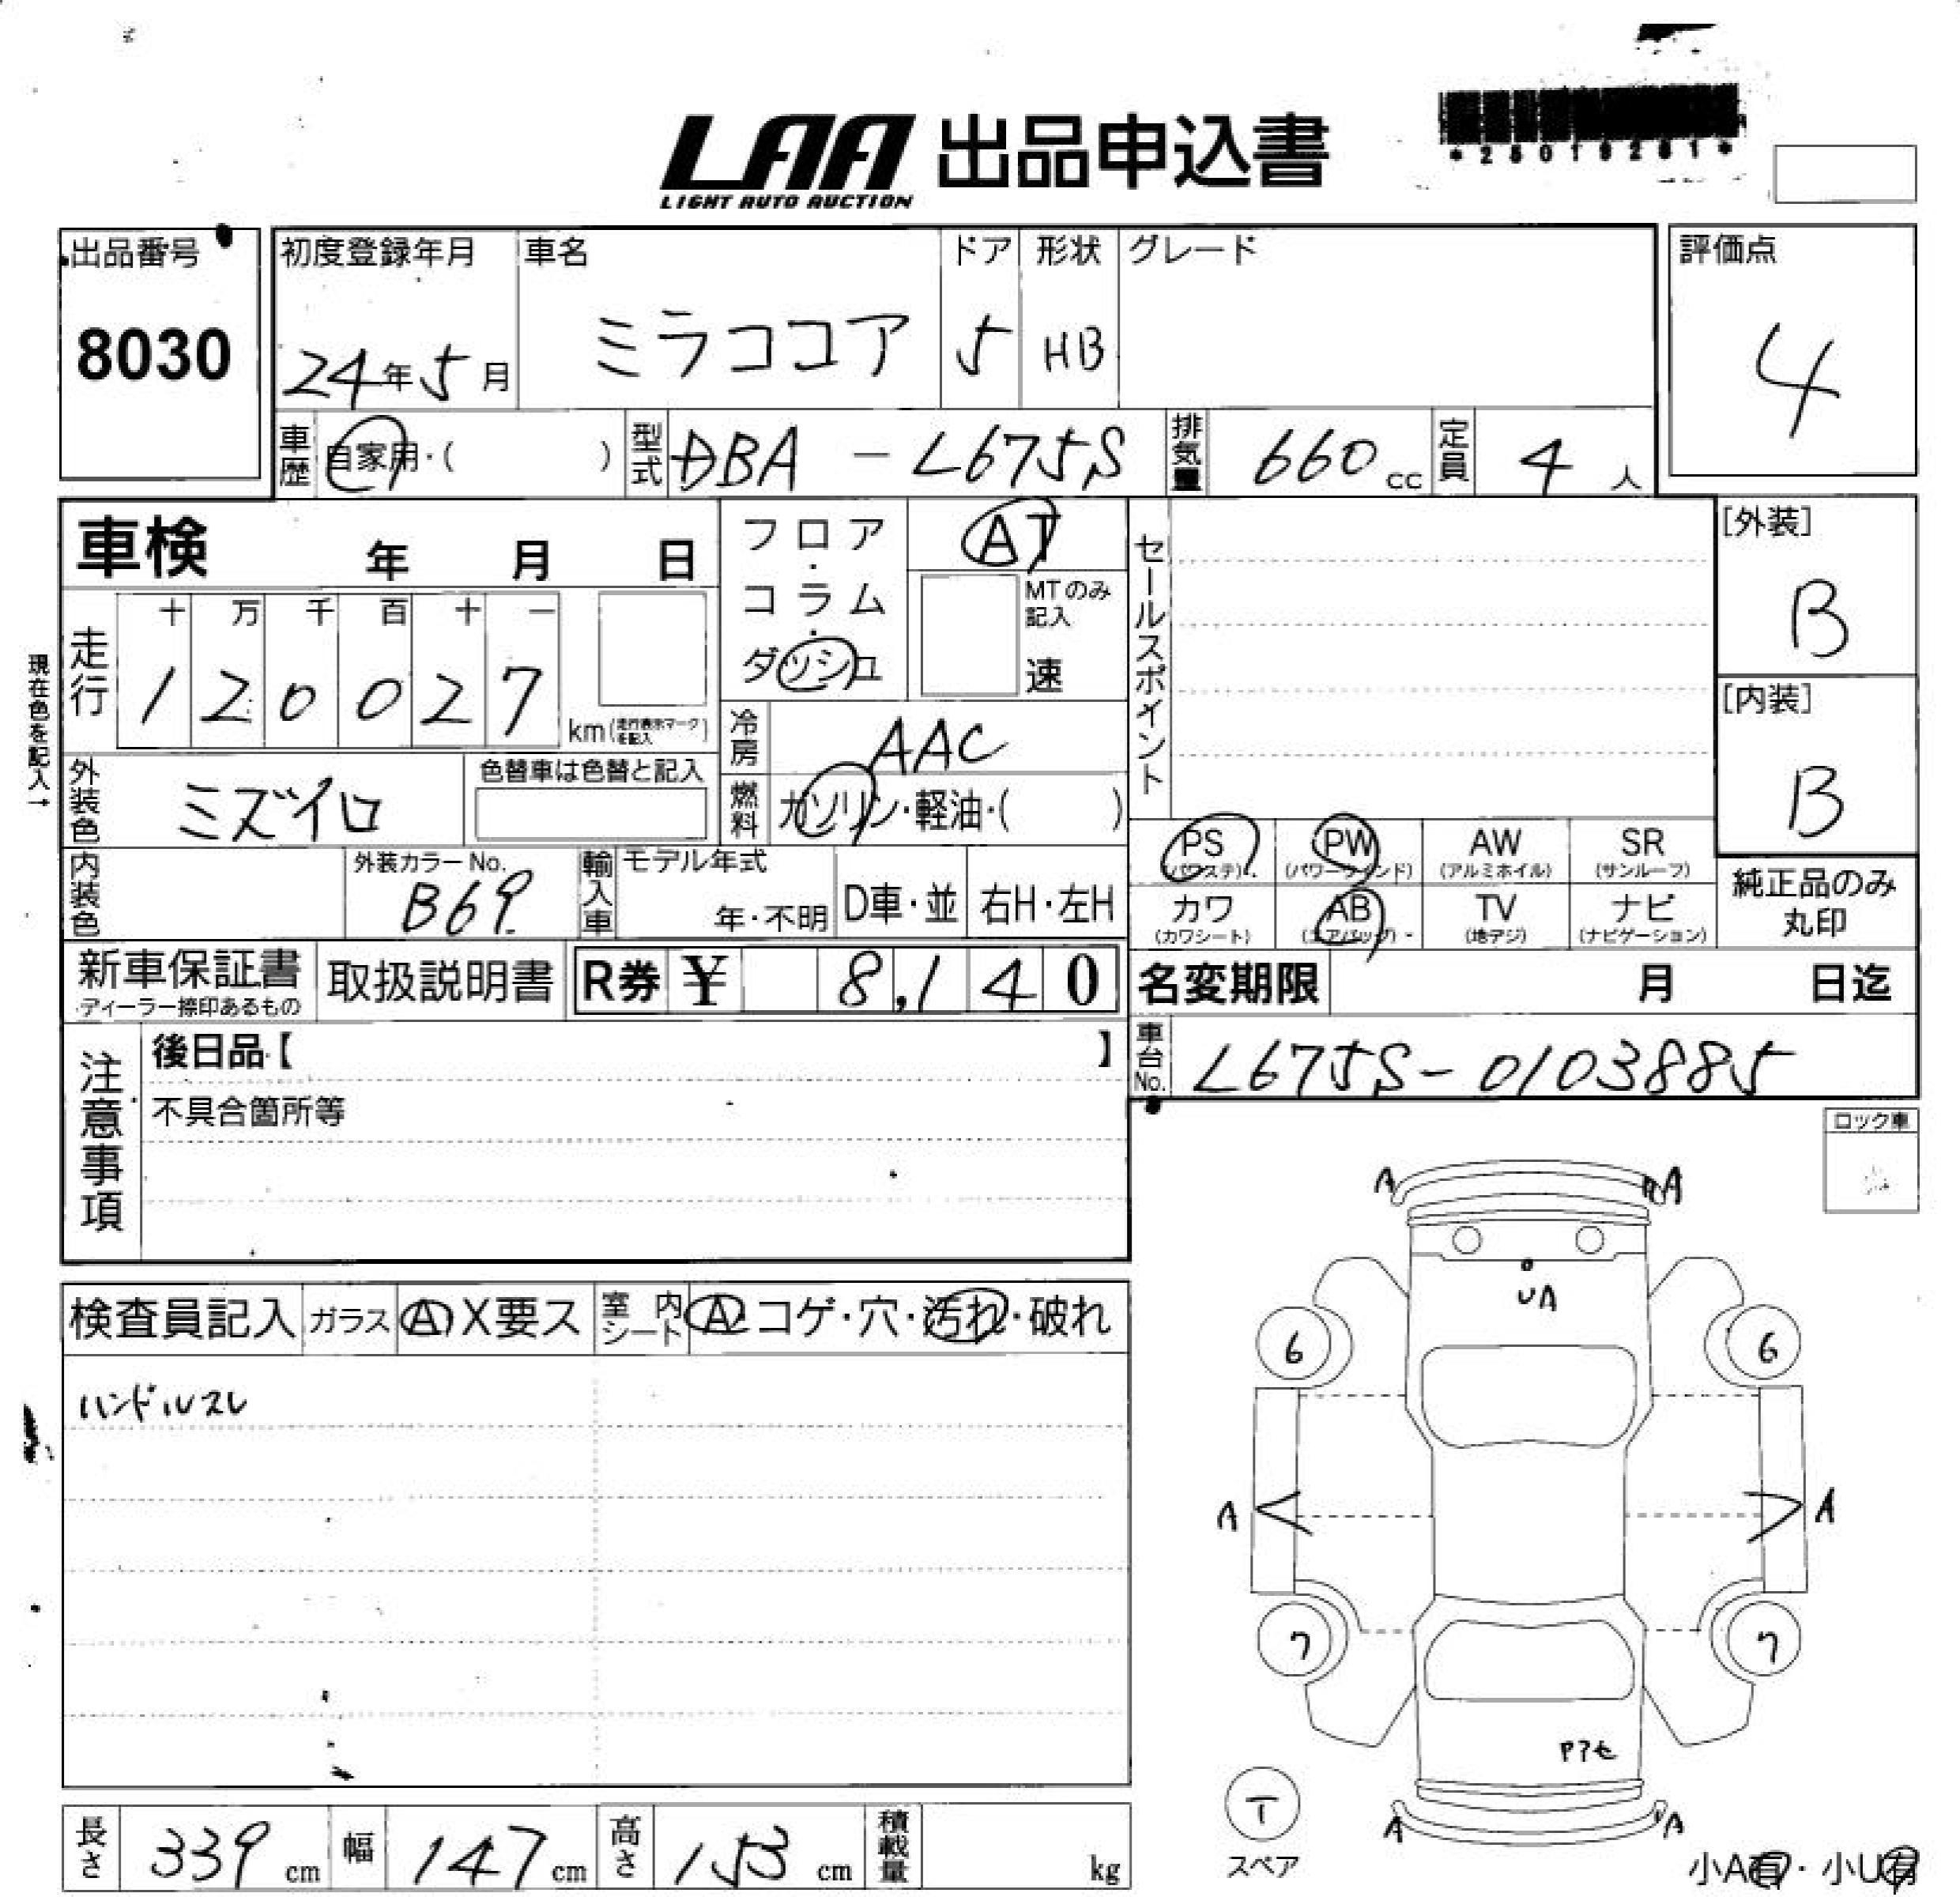 LAA 出品申込書
LIGHT AUTO AUCTION
出品番号
8030
初度登録年月
24年5月
車名
ミラココア
ドア
5
形状
HB
グレード
評価点
4
車歴
自家用・( )
型式
DBA - L675S
排気量
660 cc
定員
4 人
車検 年 月 日
フロア・コラム・ダッシュ
AT
MTのみ記入
速
セールスポイント
[外装]
B
[内装]
B
現在色を記入→
走行
十 万 千 百 十 一
1 2 0 0 2 7
km(走行表示マークを記入)
冷房
AAC
外装色
ミズイロ
色替車は色替と記入
燃料
ガソリン・軽油・( )
内装色
外装カラーNo.
B69
輸入車
モデル年式
年・不明
D車・並
右H・左H
PS (パワステ)
PW (パワーウインド)
AW (アルミホイル)
SR (サンルーフ)
カワ (カワシート)
AB (エアバッグ)
TV (地デジ)
ナビ (ナビゲーション)
純正品のみ
丸印
新車保証書
ディーラー捺印あるもの
取扱説明書
R券 ¥ 8,140
名変期限 月 日迄
車台No.
L675S-0103885
注意事項
後日品【 】
不具合箇所等
ロック車
検査員記入
ガラス
A X要ス
室内シート
A コゲ・穴・汚れ・破れ
ハンドルスレ
A A
UA
6 6
A A
7 7
A A
T
スペア
小A有・小U有
長さ 339 cm
幅 147 cm
高さ 153 cm
積載量 kg